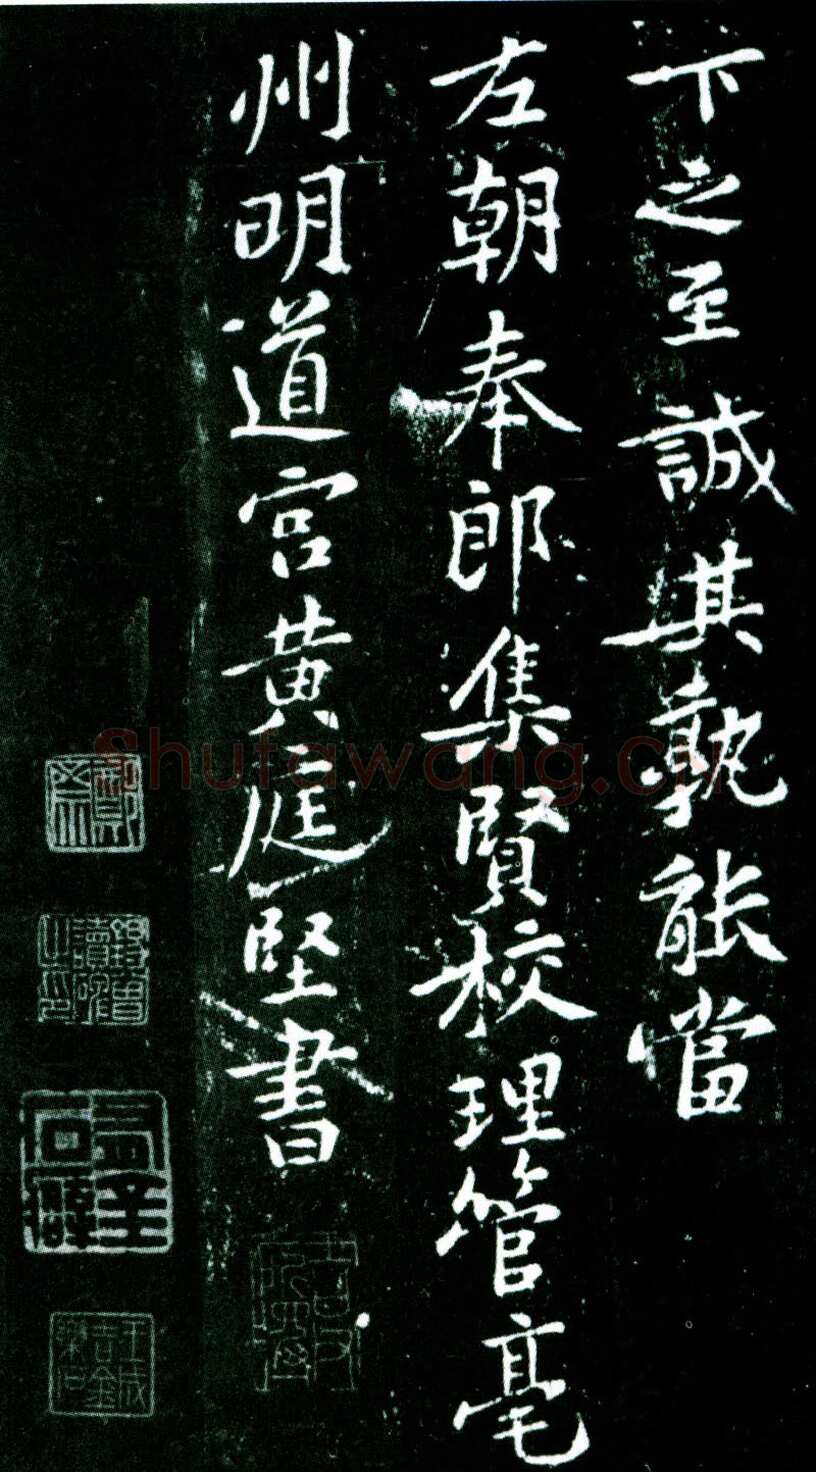 下之至誠其孰能當
左朝奉郎集賢校理管亳
州明道宮黃庭堅書
Shufawang.cn